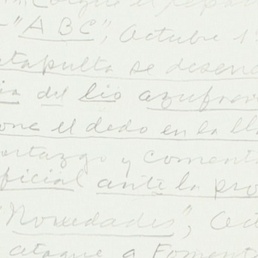 "ABC", Octubre 1
catapulta se desen
ia del lio azufra
one el dedo en la ll
ortazgo y coment
oficial ante la pro
"Novedades", Oc
ataque a Foment